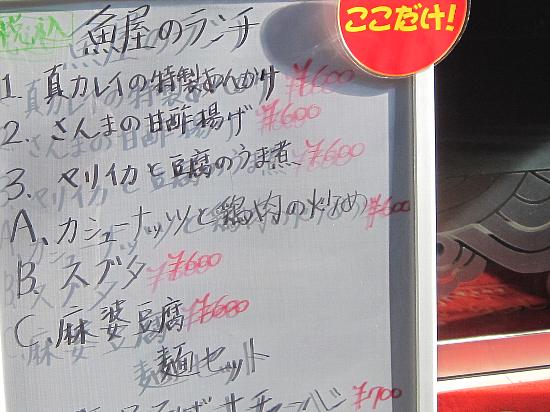 税込
魚屋のランチ
ここだけ!
1. 真カレイの特製あんかけ ¥600
2. さんまの甘酢揚げ ¥600
3. ヤリイカと豆腐のうま煮 ¥600
A. カシューナッツと鶏肉の炒め ¥600
B. スブタ ¥600
C. 麻婆豆腐 ¥600
麺セット
¥700